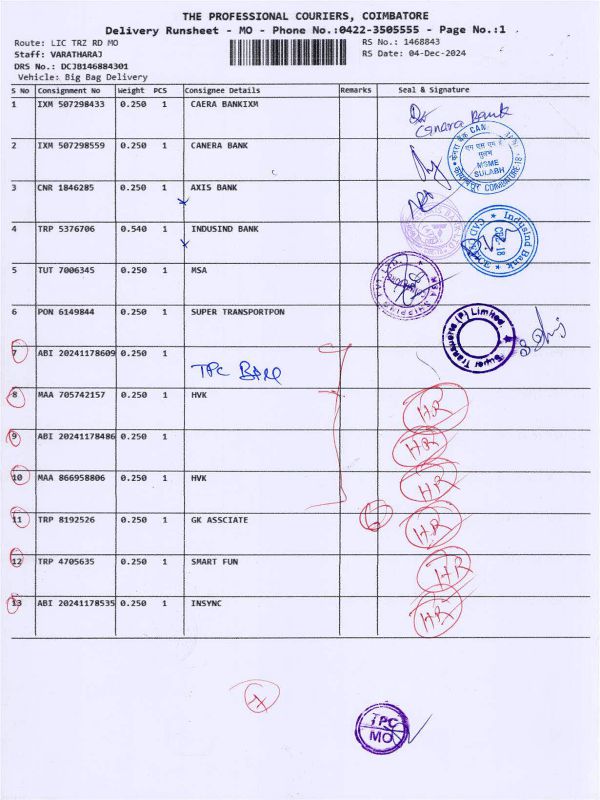 THE PROFESSIONAL COURIERS, COIMBATORE
Delivery Runsheet - MO - Phone No.:0422-3505555 - Page No.:1
Route: LIC TRZ RD MO
RS No.: 1468843
Staff: VARATHARAJ
RS Date: 04-Dec-2024
DRS No.: DCJB146884301
Vehicle: Big Bag Delivery
S No Consignment No Weight PCS Consignee Details Remarks Seal & Signature
1 IXM 507298433 0.250 1 CAERA BANKIXM
Canara Bank
2 IXM 507298559 0.250 1 CANERA BANK
केनरा बैंक CAN
एम एस एम ई
सुलभ
MSME
SULABH
COIMBATORE-18
3 CNR 1846285 0.250 1 AXIS BANK
4 TRP 5376706 0.540 1 INDUSIND BANK
IndusInd Bank
5 TUT 7006345 0.250 1 MSA
6 PON 6149844 0.250 1 SUPER TRANSPORTPON
Super Transports (P) Limited.
7 ABI 20241178609 0.250 1
TPC
8 MAA 705742157 0.250 1 HVK
HR
9 ABI 20241178486 0.250 1
HR
10 MAA 866958806 0.250 1 HVK
HR
11 TRP 8192526 0.250 1 GK ASSCIATE
HR
12 TRP 4705635 0.250 1 SMART FUN
HR
13 ABI 20241178535 0.250 1 INSYNC
HR
TPC
MO